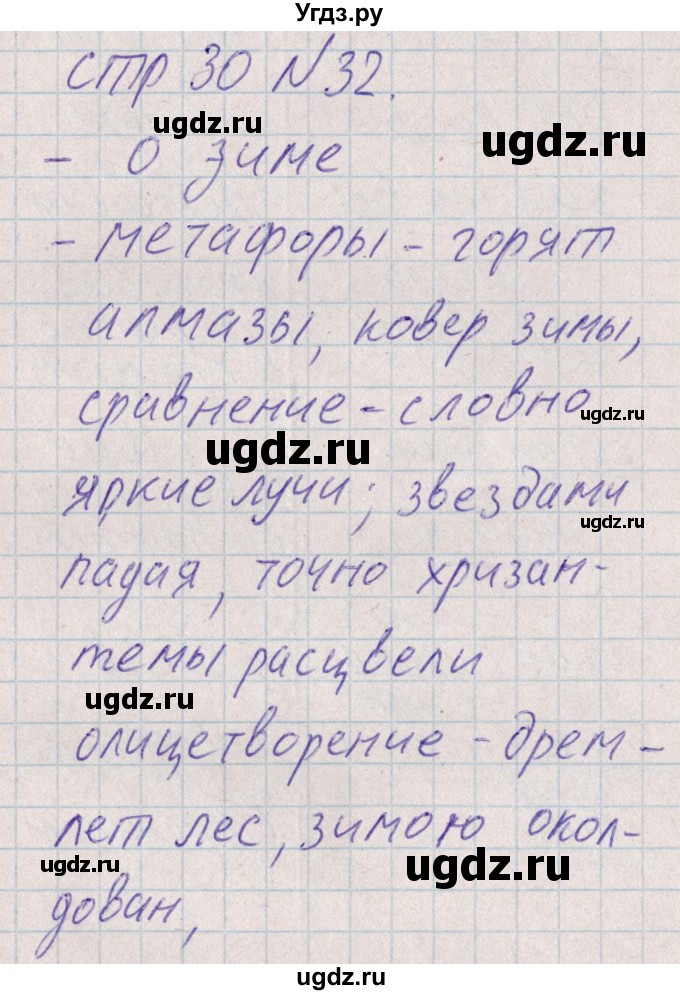 Угдз.ру
стр 30 №32.
ugdz.ru
ugdz.ru
- О зиме
- метафоры - горят
алмазы, ковер зимы,
сравнение - словно
ugdz.ru
ugdz.ru
яркие лучи; звездами
ugdz.ru
падая, точно хризан-
темы расцвели
ugdz.ru
олицетворение - дрем-
лет лес, зимою окол-
ugdz.ru
ugdz.ru
дован,
ugdz.ru